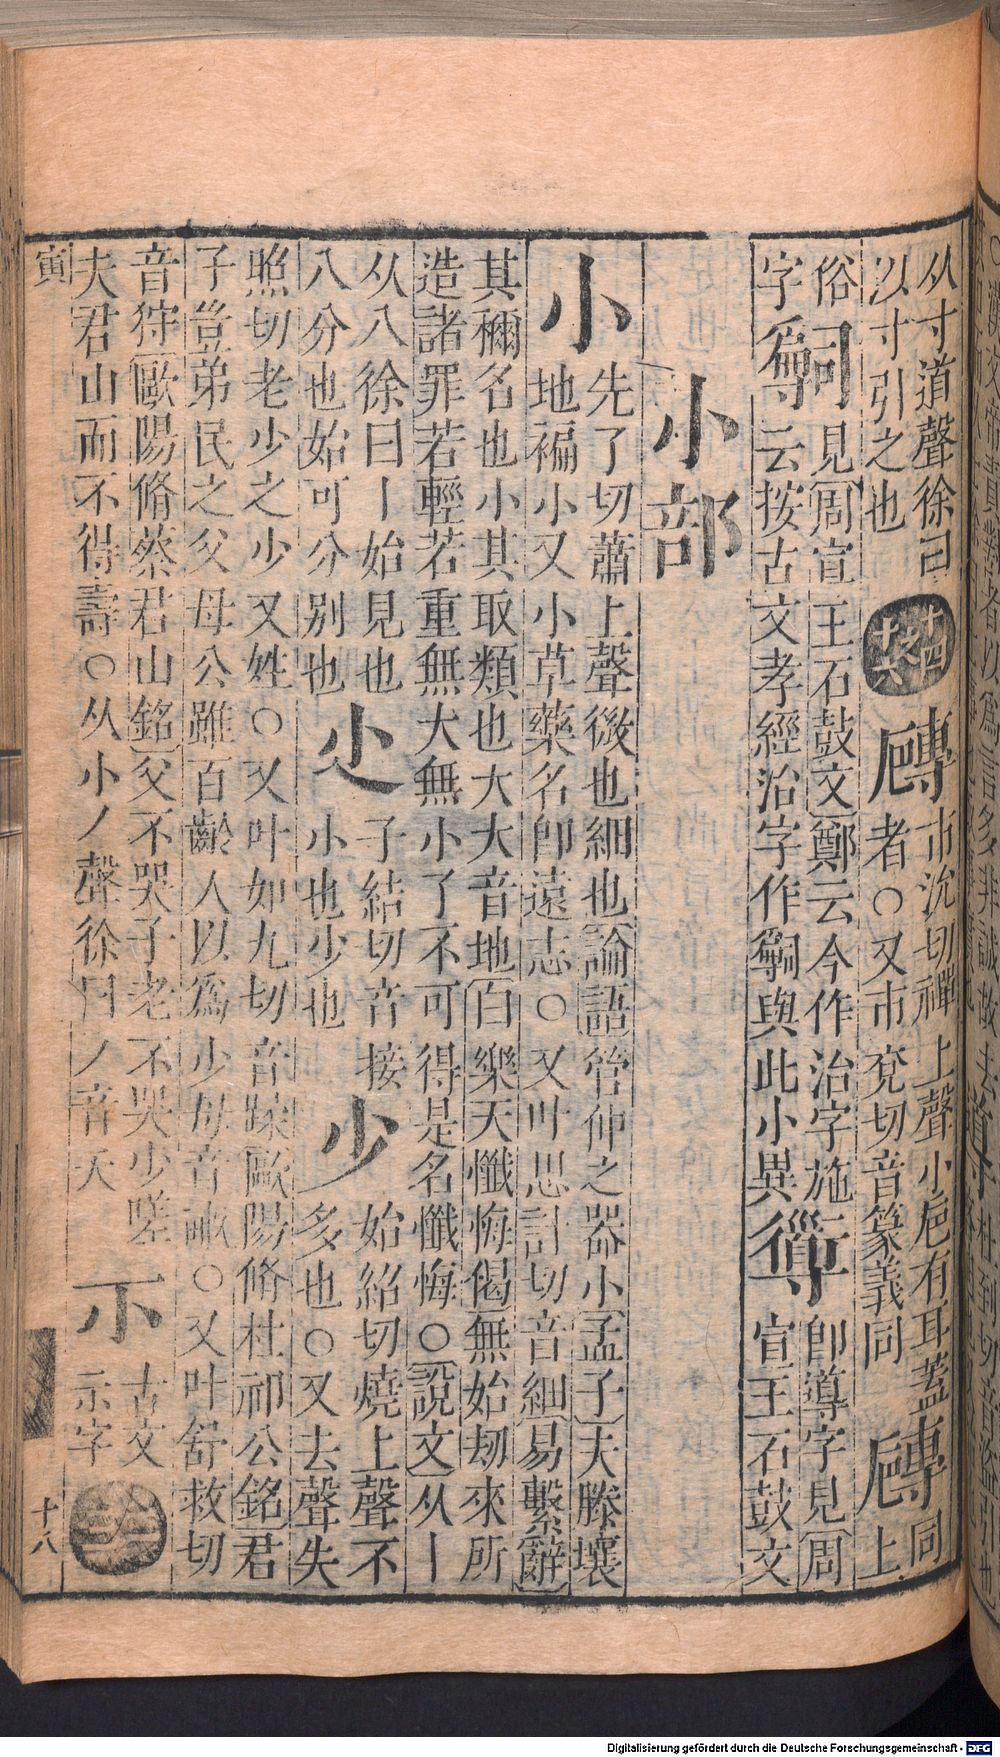 从寸道聲徐曰
以寸引之也
十四
十六
畫
𫴴市沇切禪上聲小巵有耳蓋
者○又市兖切音篆義同
𫴴同上
俗𤔲見周宣王石鼓文鄭云今作治字施
字𡬶云按古文孝經治字作𤔲與此小異
𨗓卽導字見周宣王石鼓文
小部
小先了切蕭上聲微也細也論語管仲之器小孟子夫滕壤
地褊小又小草藥名卽遠志○又叶思計切音細易繫辭
其禰名也小其取類也大大音地白樂天懺悔偈無始劫來所
造諸罪若輕若重無大無小了不可得是名懺悔○說文从丨
从八徐曰丨始見也
八分也始可分别也
𡭔子結切音接
小也少也
少始紹切燒上聲不
多也○又去聲失
照切老少之少又姓○又叶如九切音蹂歐陽脩杜祁公銘君
子豈弟民之父母公雖百齡人以爲少母音畝○又叶舒救切
音狩歐陽脩蔡君山銘父不哭子老不哭少嗟
夫君山而不得壽○从小丿聲徐曰丿音夭
𡭕古文
示字
一
畫
寅
十八
Digitalisierung gefördert durch die Deutsche Forschungsgemeinschaft - DFG